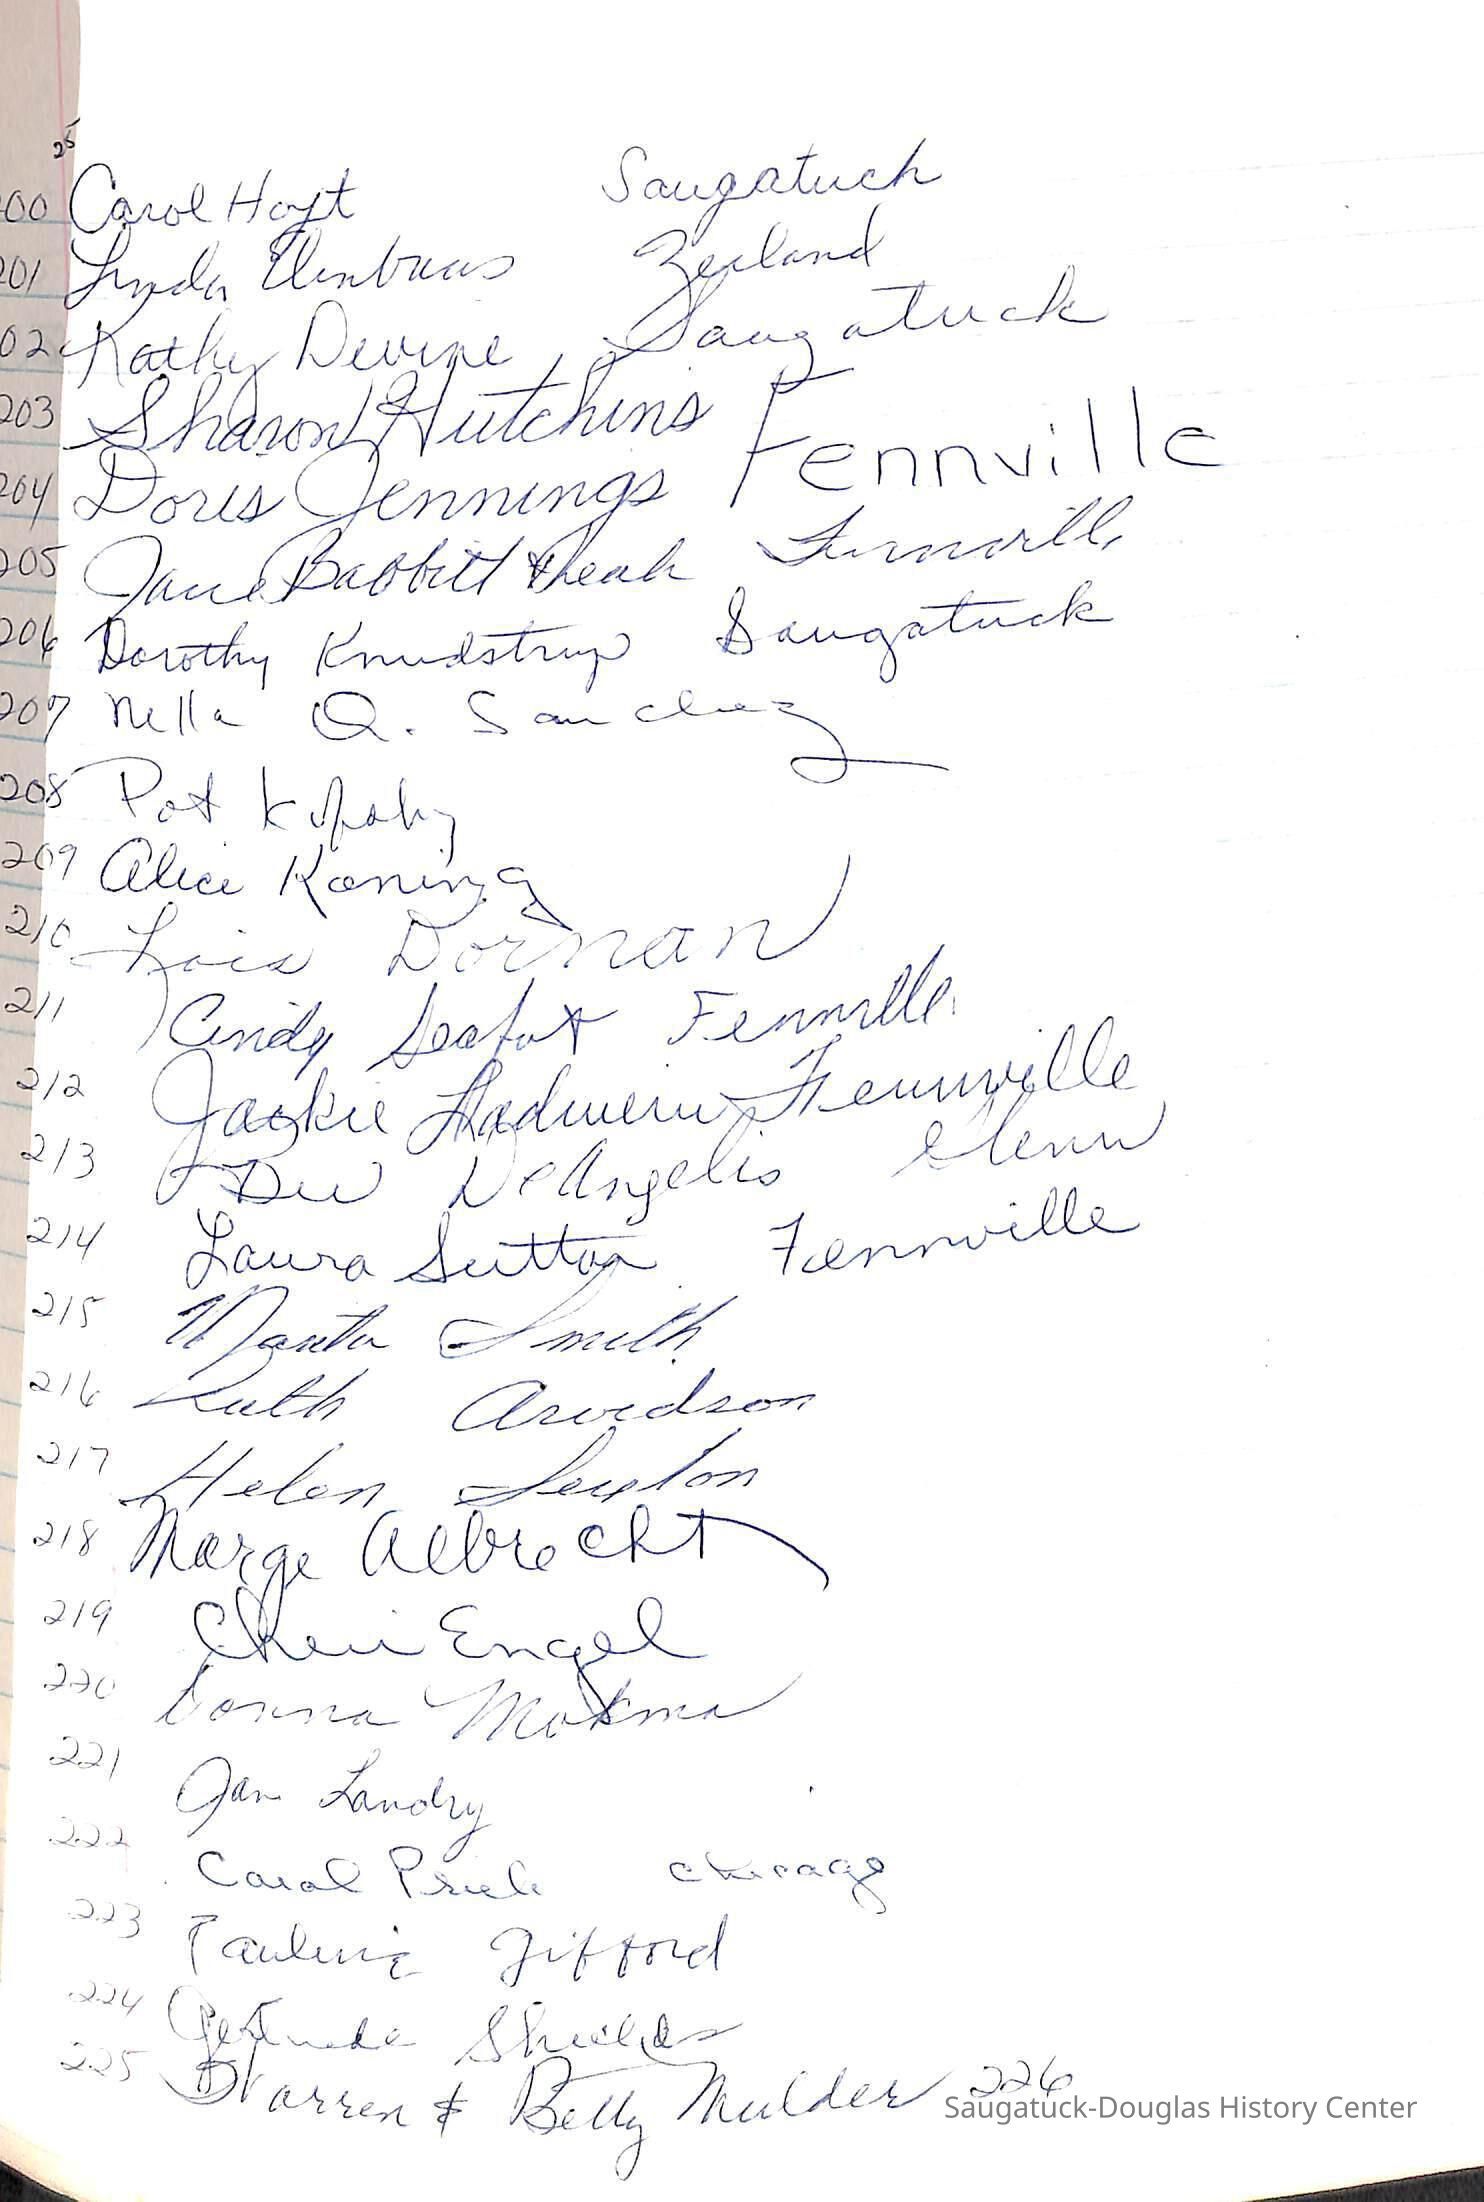 25
200 Carol Hoyt Saugatuck
201 Linda Elenbaas Zeeland
202 Kathy Devine Saugatuck
203 Sharon Hutchins
204 Doris Jennings Fennville
205 Jane Babbitt Fennville
206 Dorothy Knudstrup Saugatuck
207 Nella Q. Sanchez
208 Pat
209 Alice Koning
210 Lois Dornan
211 Cindy Fennville
212 Jackie Hadwerw Fennville
213 Dee DeAngelis Glenn
214 Laura Sutton Fennville
215 Smith
216 Ruth Arvidson
217 Helen Sexton
218 Marge Albrecht
219 Cheri Engel
220 Donna Mokma
221 Jan Landry
222 Carol Chicago
223 Pauline Gifford
224 Gertrude Shields
225 Warren & Betty Mulder 226
Saugatuck-Douglas History Center